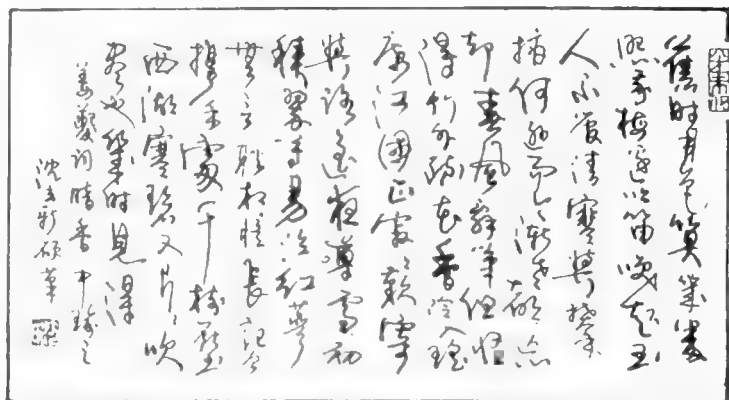 舊時月色算幾番
照我梅邊吹笛喚起玉
人不管清寒與攀
摘何遜而今漸老都忘
却春風詞筆但怪
得竹外疏花香冷入瑤
席江國正寂寂歎寄
與路遙夜雪初
積翠尊易泣紅萼
無言耿相憶長記曾
攜手處千樹壓
西湖寒碧又片片吹
盡也幾時見得
姜夔詞暗香
沈